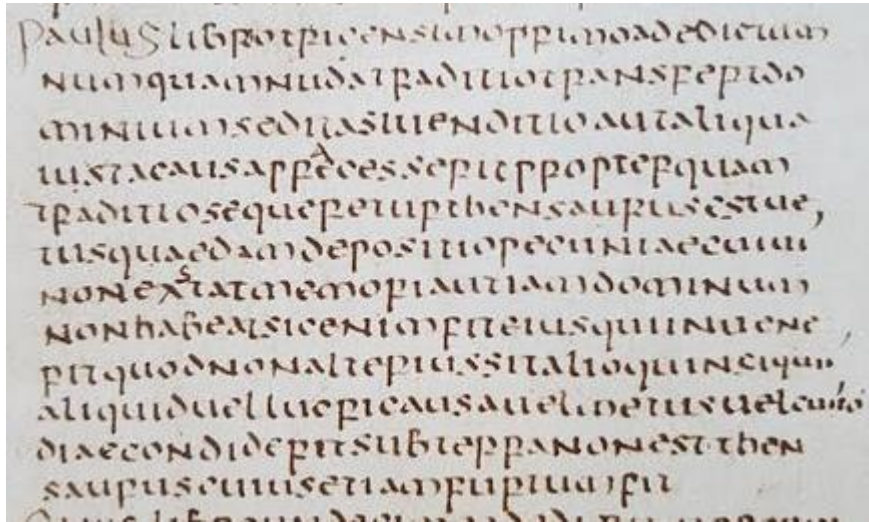 Paulus libro tricensimo primo ad edictum
numquam nuda traditio transfert do
minium sed ita si uenditio aut aliqua
iusta causa praecesserit propter quam
traditio sequeretur thensaurus est ue
tus quaedam depositio pecuniae cuius
non exstat memoria ut iam dominum
non habeat sic enim fit eius qui inuene
rit quod non alterius sit alioquin si quis
aliquid uel lucri causa uel metus uel custo
diae condiderit sub terra non est then
saurus cuius etiam furtum fit